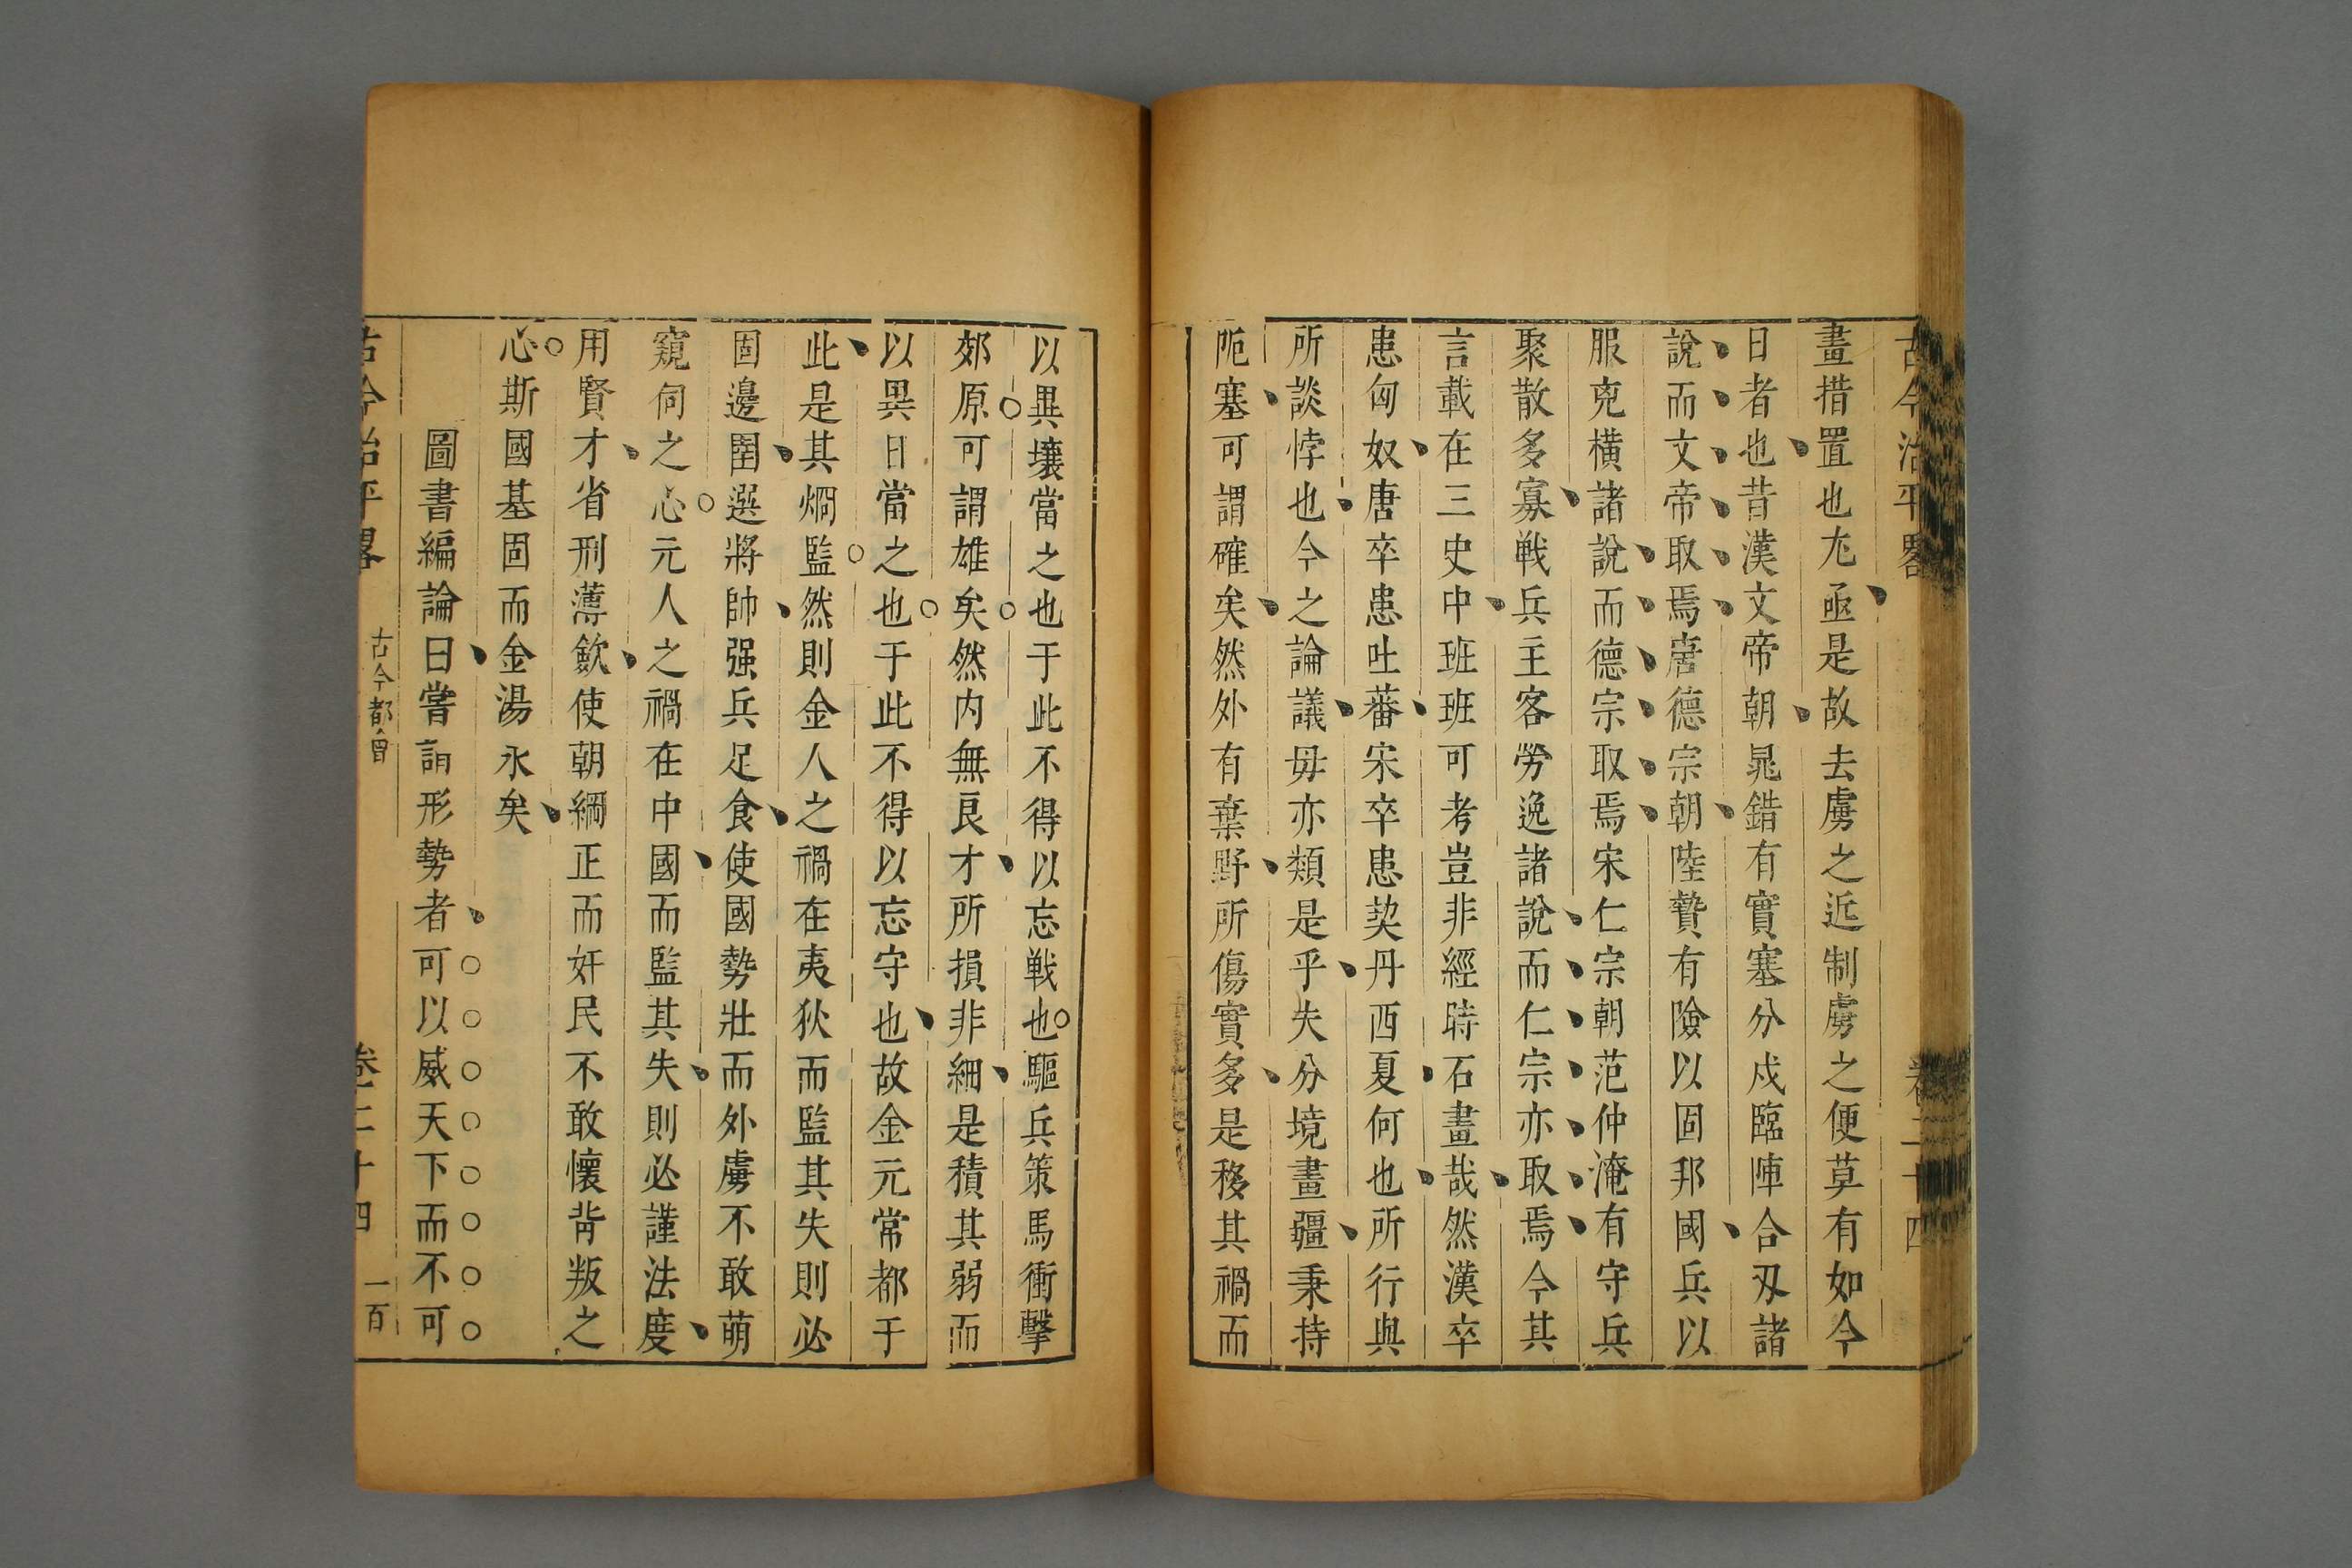 古今治平畧
卷二十四
畫措置也尤亟是故去虜之近制虜之便莫有如今
日者也昔漢文帝朝晁錯有實塞分戍臨陣合刃諸
說而文帝取焉唐德宗朝陸贄有險以固邦國兵以
服兇橫諸說而德宗取焉宋仁宗朝范仲淹有守兵
聚散多寡戦兵主客勞逸諸說而仁宗亦取焉今其
言載在三史中班班可考豈非經時石畫哉然漢卒
患匈奴唐卒患吐蕃宋卒患契丹西夏何也所行與
所談悖也今之論議毋亦類是乎失分境畫疆秉持
阨塞可謂確矣然外有棄野所傷實多是移其禍而
以異壤當之也于此不得以忘戦也驅兵策馬衝擊
郊原可謂雄矣然内無良才所損非細是積其弱而
以異日當之也于此不得以忘守也故金元常都于
此是其烱監然則金人之禍在夷狄而監其失則必
固邊圉選將帥强兵足食使國勢壯而外虜不敢萌
窺伺之心元人之禍在中國而監其失則必謹法度
用賢才省刑薄歛使朝綱正而奸民不敢懷背叛之
心斯國基固而金湯永矣
圖書編論曰嘗謂形勢者可以威天下而不可
古今治平畧
古今都會
卷二十四
一百